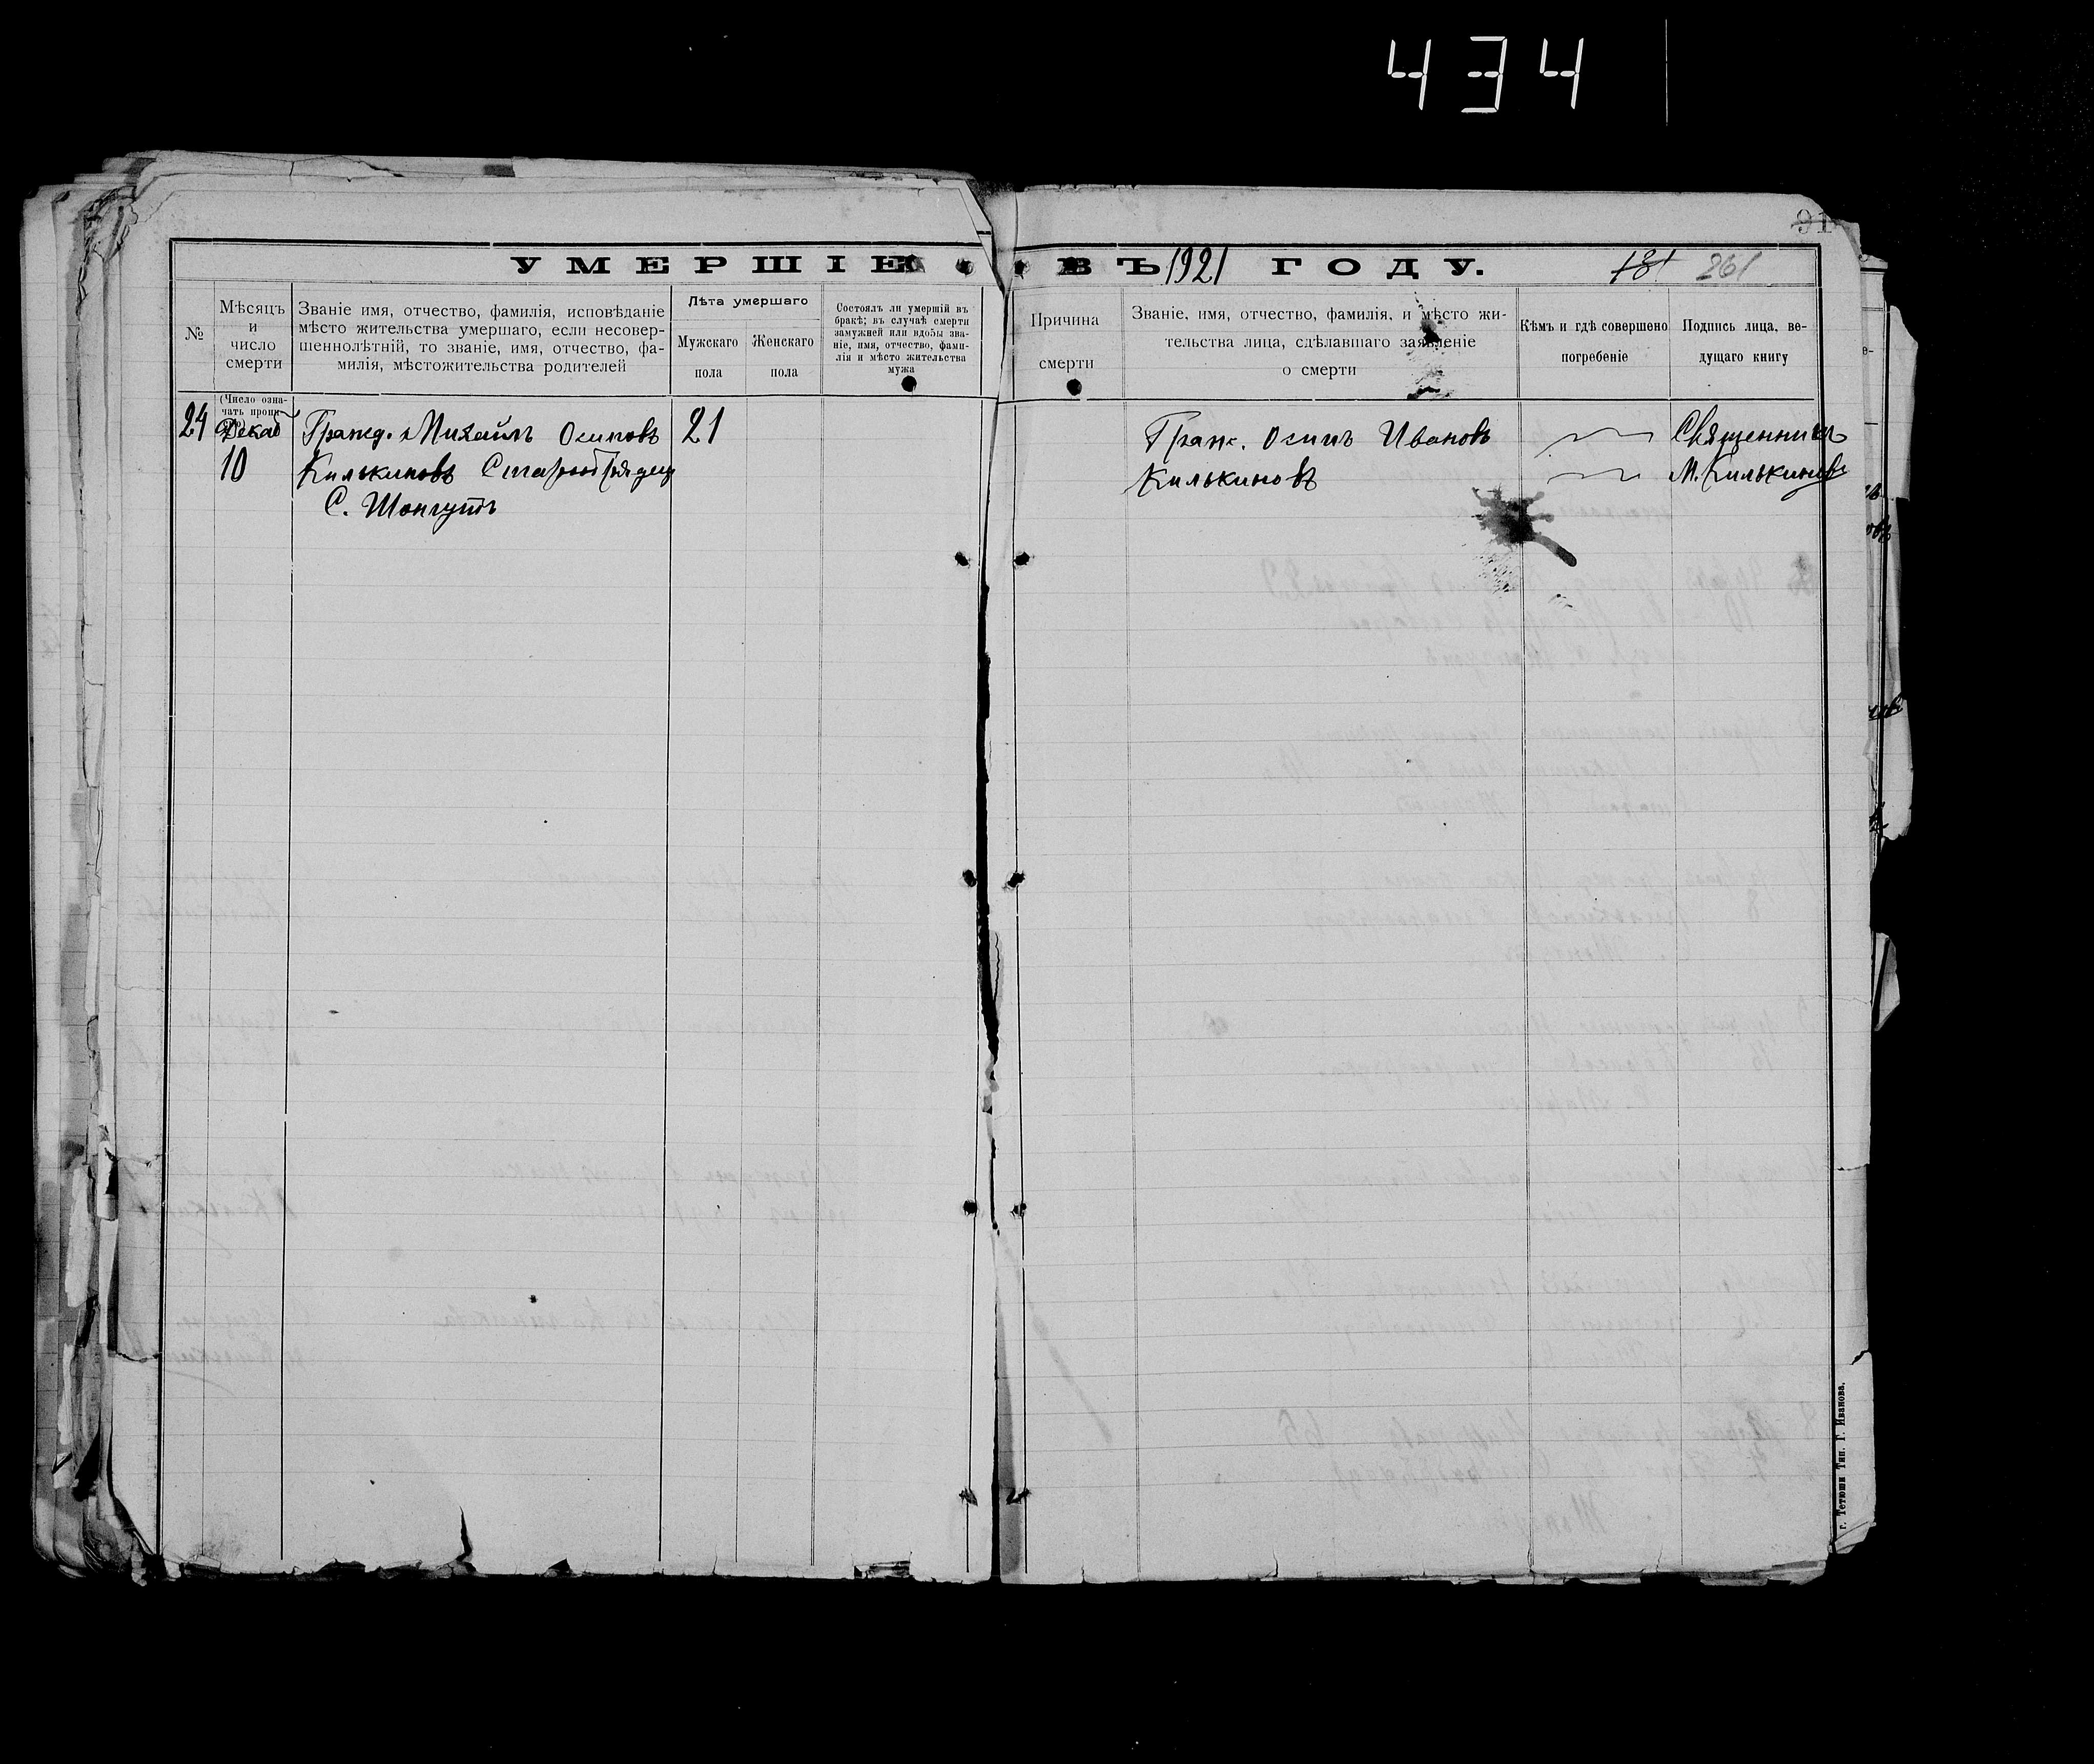 434
91
УМЕРШІЕ ВЪ 1921 ГОДУ.
181 261
№
Мѣсяцъ
и
число
смерти
Званіе имя, отчество, фамилія, исповѣданіе
мѣсто жительства умершаго, если несовер-
шеннолѣтній, то званіе, имя, отчество, фа-
милія, мѣстожительства родителей
Лѣта умершаго
Мужскаго
пола
Женскаго
пола
Состоялъ ли умершій въ
бракѣ; въ случаѣ смерти
замужней или вдовы зва-
ніе, имя, отчество, фами-
лія и мѣсто жительства
мужа
Причина
смерти
Званіе, имя, отчество, фамилія, и мѣсто жи-
тельства лица, сдѣлавшаго заявленіе
о смерти
Кѣмъ и гдѣ совершено
погребеніе
Подпись лица, ве-
дущаго книгу
(Число озна-
чать пропи-
24 Декаб
10
Гражд. Михаилъ Осиповъ
Килькиновъ Старообрядец
С. Шонгутъ
21
Граж. Осипъ Ивановъ
Килькиновъ
Священникъ
М. Килькиновъ
г. Тетюши Тип. Г. Иванова.